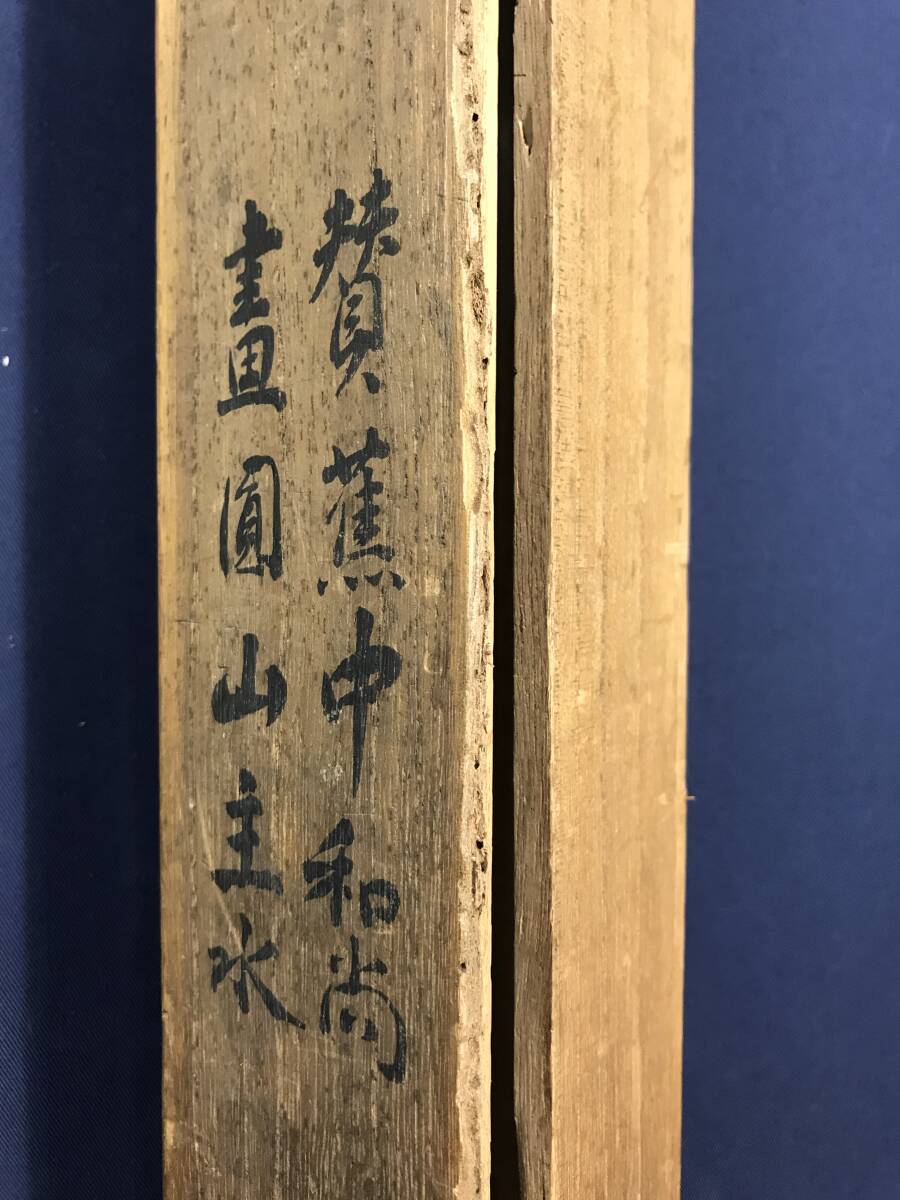 賛蕉中和尚
畫圓山主水